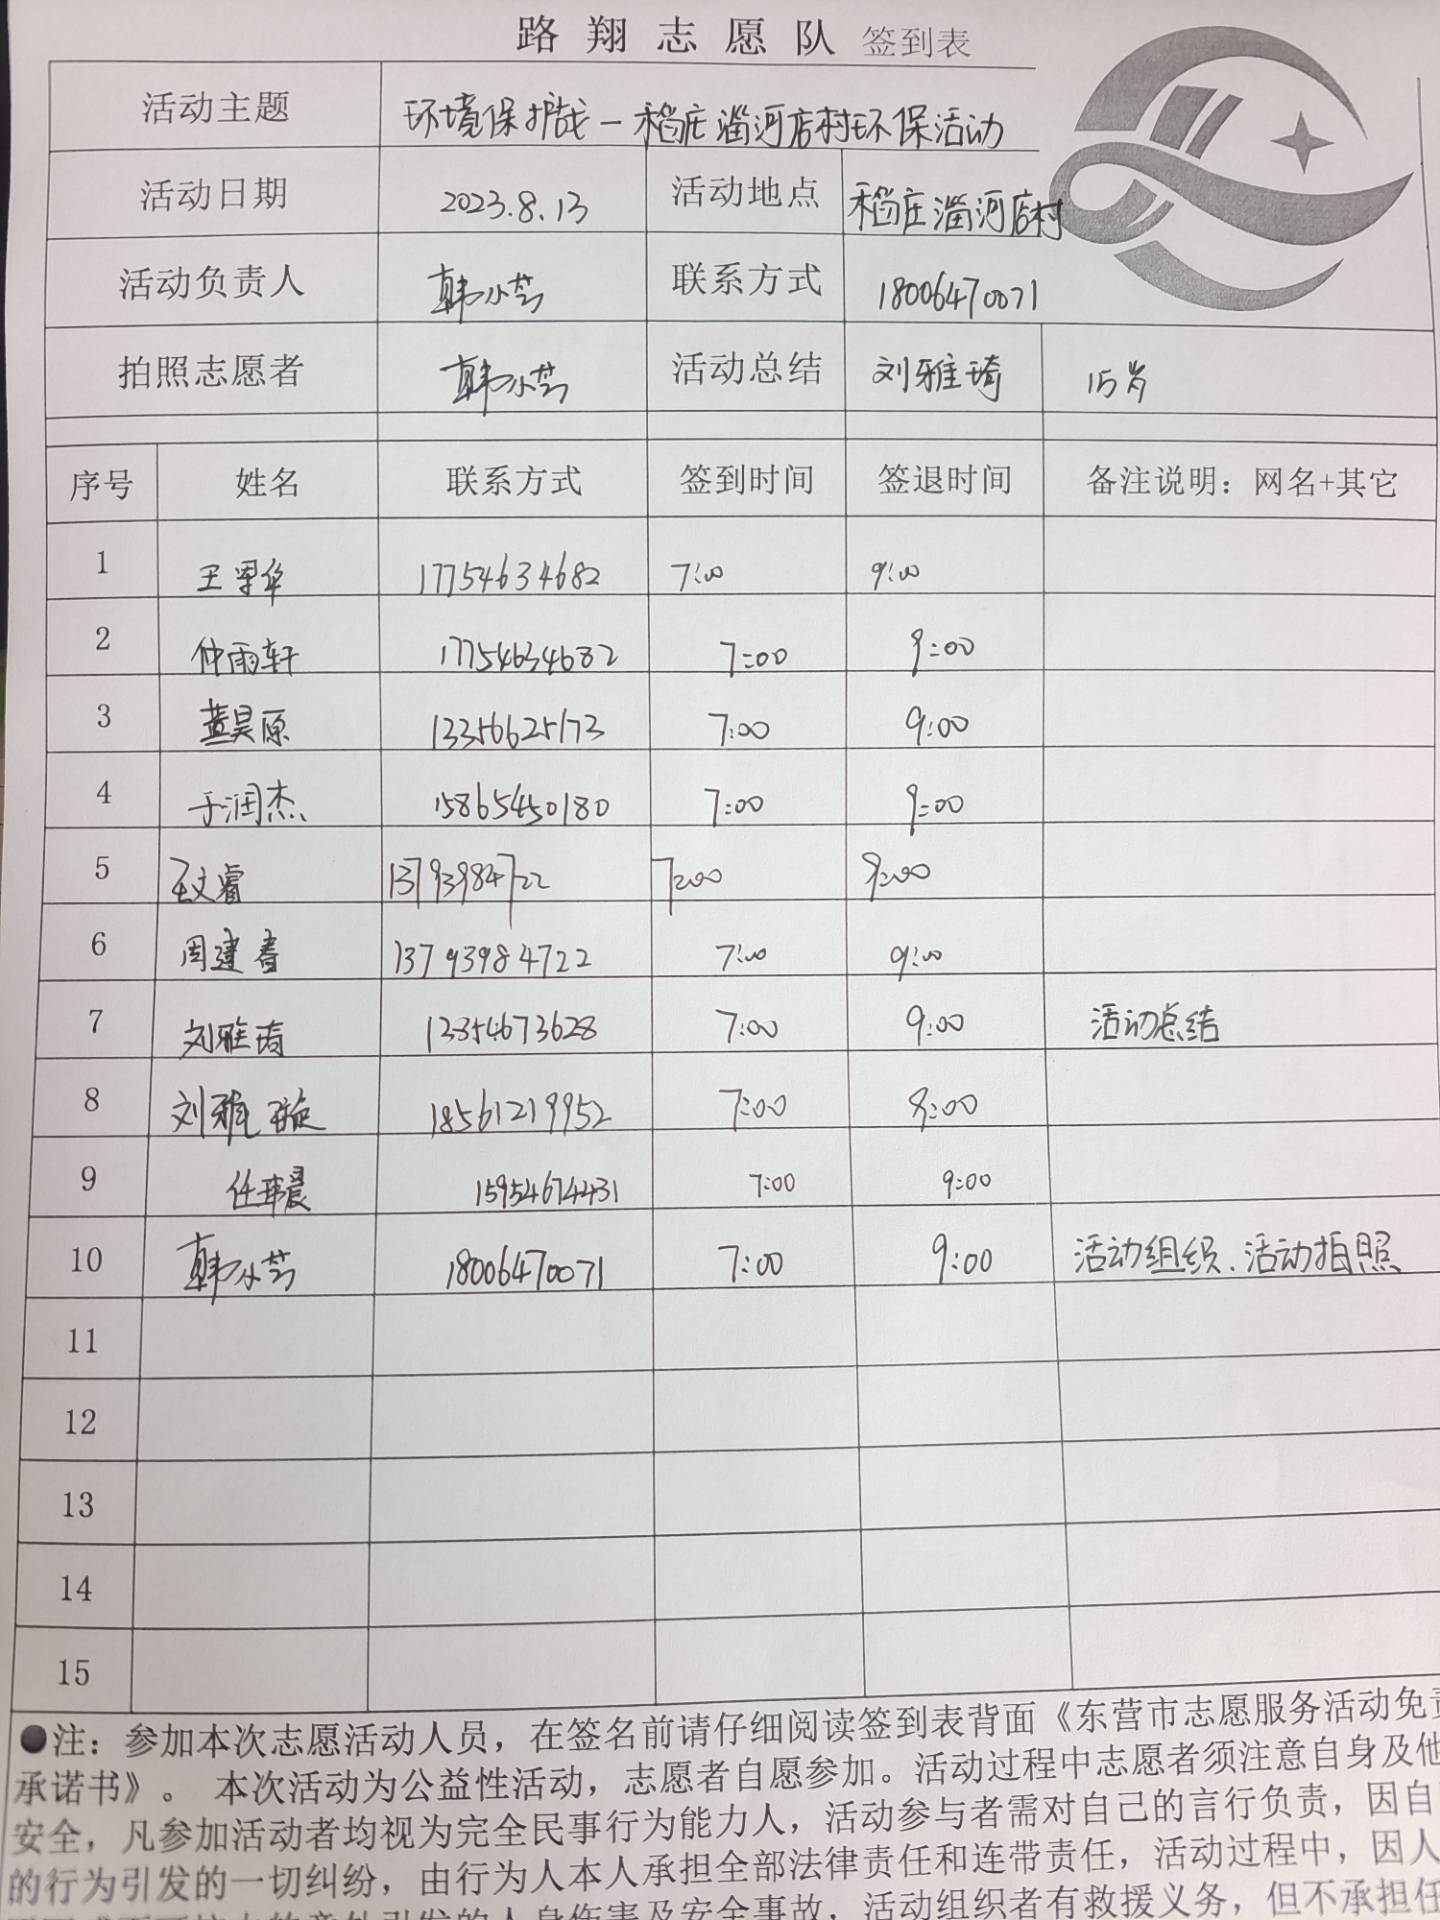 路翔志愿队 签到表
活动主题 环境保护战－稻庄淄河店村环保活动
活动日期 2023.8.13 活动地点 稻庄淄河店村
活动负责人 韩小芸 联系方式 18006470071
拍照志愿者 韩小芸 活动总结 刘雅琦 15岁
序号 姓名 联系方式 签到时间 签退时间 备注说明：网名+其它
1 王军华 17754634682 7:00 9:00
2 仲雨轩 17754634682 7:00 9:00
3 蓝昊原 13356625173 7:00 9:00
4 于润杰 15865450180 7:00 9:00
5 王文睿 13793984722 7:00 9:00
6 周建春 13793984722 7:00 9:00
7 刘雅琦 13354673628 7:00 9:00 活动总结
8 刘雅璇 18561219952 7:00 9:00
9 任玮晨 15954674431 7:00 9:00
10 韩小芸 18006470071 7:00 9:00 活动组织、活动拍照
11
12
13
14
15
●注：参加本次志愿活动人员，在签名前请仔细阅读签到表背面《东营市志愿服务活动免责
承诺书》。 本次活动为公益性活动，志愿者自愿参加。活动过程中志愿者须注意自身及他
安全，凡参加活动者均视为完全民事行为能力人，活动参与者需对自己的言行负责，因自
的行为引发的一切纠纷，由行为人本人承担全部法律责任和连带责任，活动过程中，因人
的意外引发的人身伤害及安全事故，活动组织者有救援义务，但不承担任